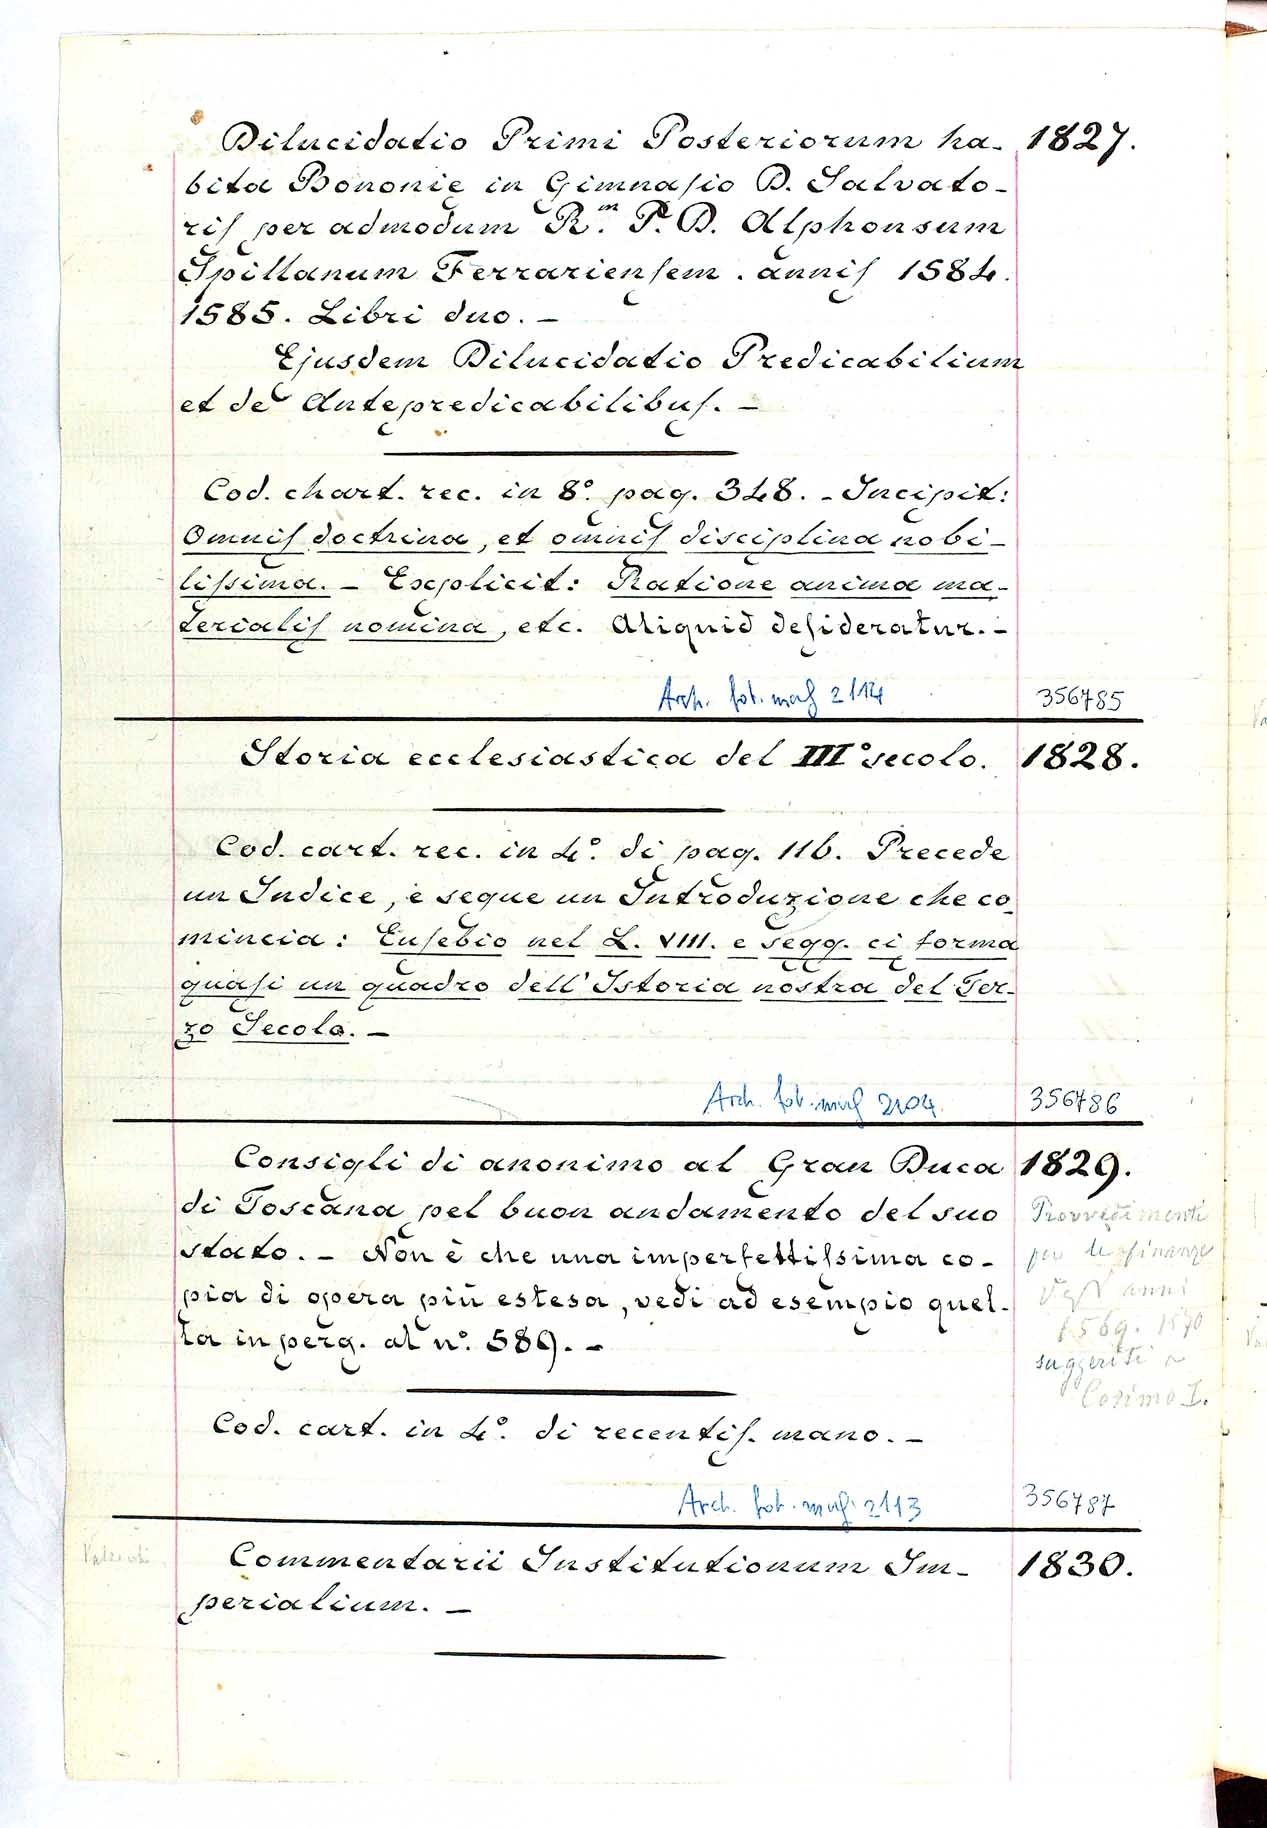 Dilucidatio Primi Posteriorum ha- 1827.
bita Bononie in Gimnasio D. Salvato-
ris per admodum R.m P. D. Alphonsum
Spillanum Ferrariensem. annis 1584.
1585. Libri duo. –
Ejusdem Dilucidatio Predicabilium
et de Antepredicabilibus. –
Cod. chart. rec. in 8°. pag. 348. - Incipit:
Omnis doctrina, et omnis disciplina nobi-
lissima. – Explicit: Ratione anima ma-
terialis nomina, etc. Aliquid desideratur. –
Arch. fot. mag 2114 356785
Storia ecclesiastica del III° secolo. 1828.
Cod. cart. rec. in 4°. di pag. 116. Precede
un Indice, e segue un Introduzione che co-
mincia: Eusebio nel L. VIII. e segg. ci forma
quasi un quadro dell'Istoria nostra del Ter-
zo Secolo. –
Arch. fot. mag 2104 356786
Consigli di anonimo al Gran Duca 1829.
di Toscana pel buon andamento del suo
stato. – Non è che una imperfettissima co-
pia di opera più estesa, vedi ad esempio quel-
la in perg. al n°. 589. –
Provvedimenti
per le finanze
anni
1569. 1570
suggeriti a
Cosimo I.
Cod. cart. in 4°. di recentis. mano. –
Arch. fot. mag 2113 356787
Commentarii Institutionum Im- 1830.
perialium. –